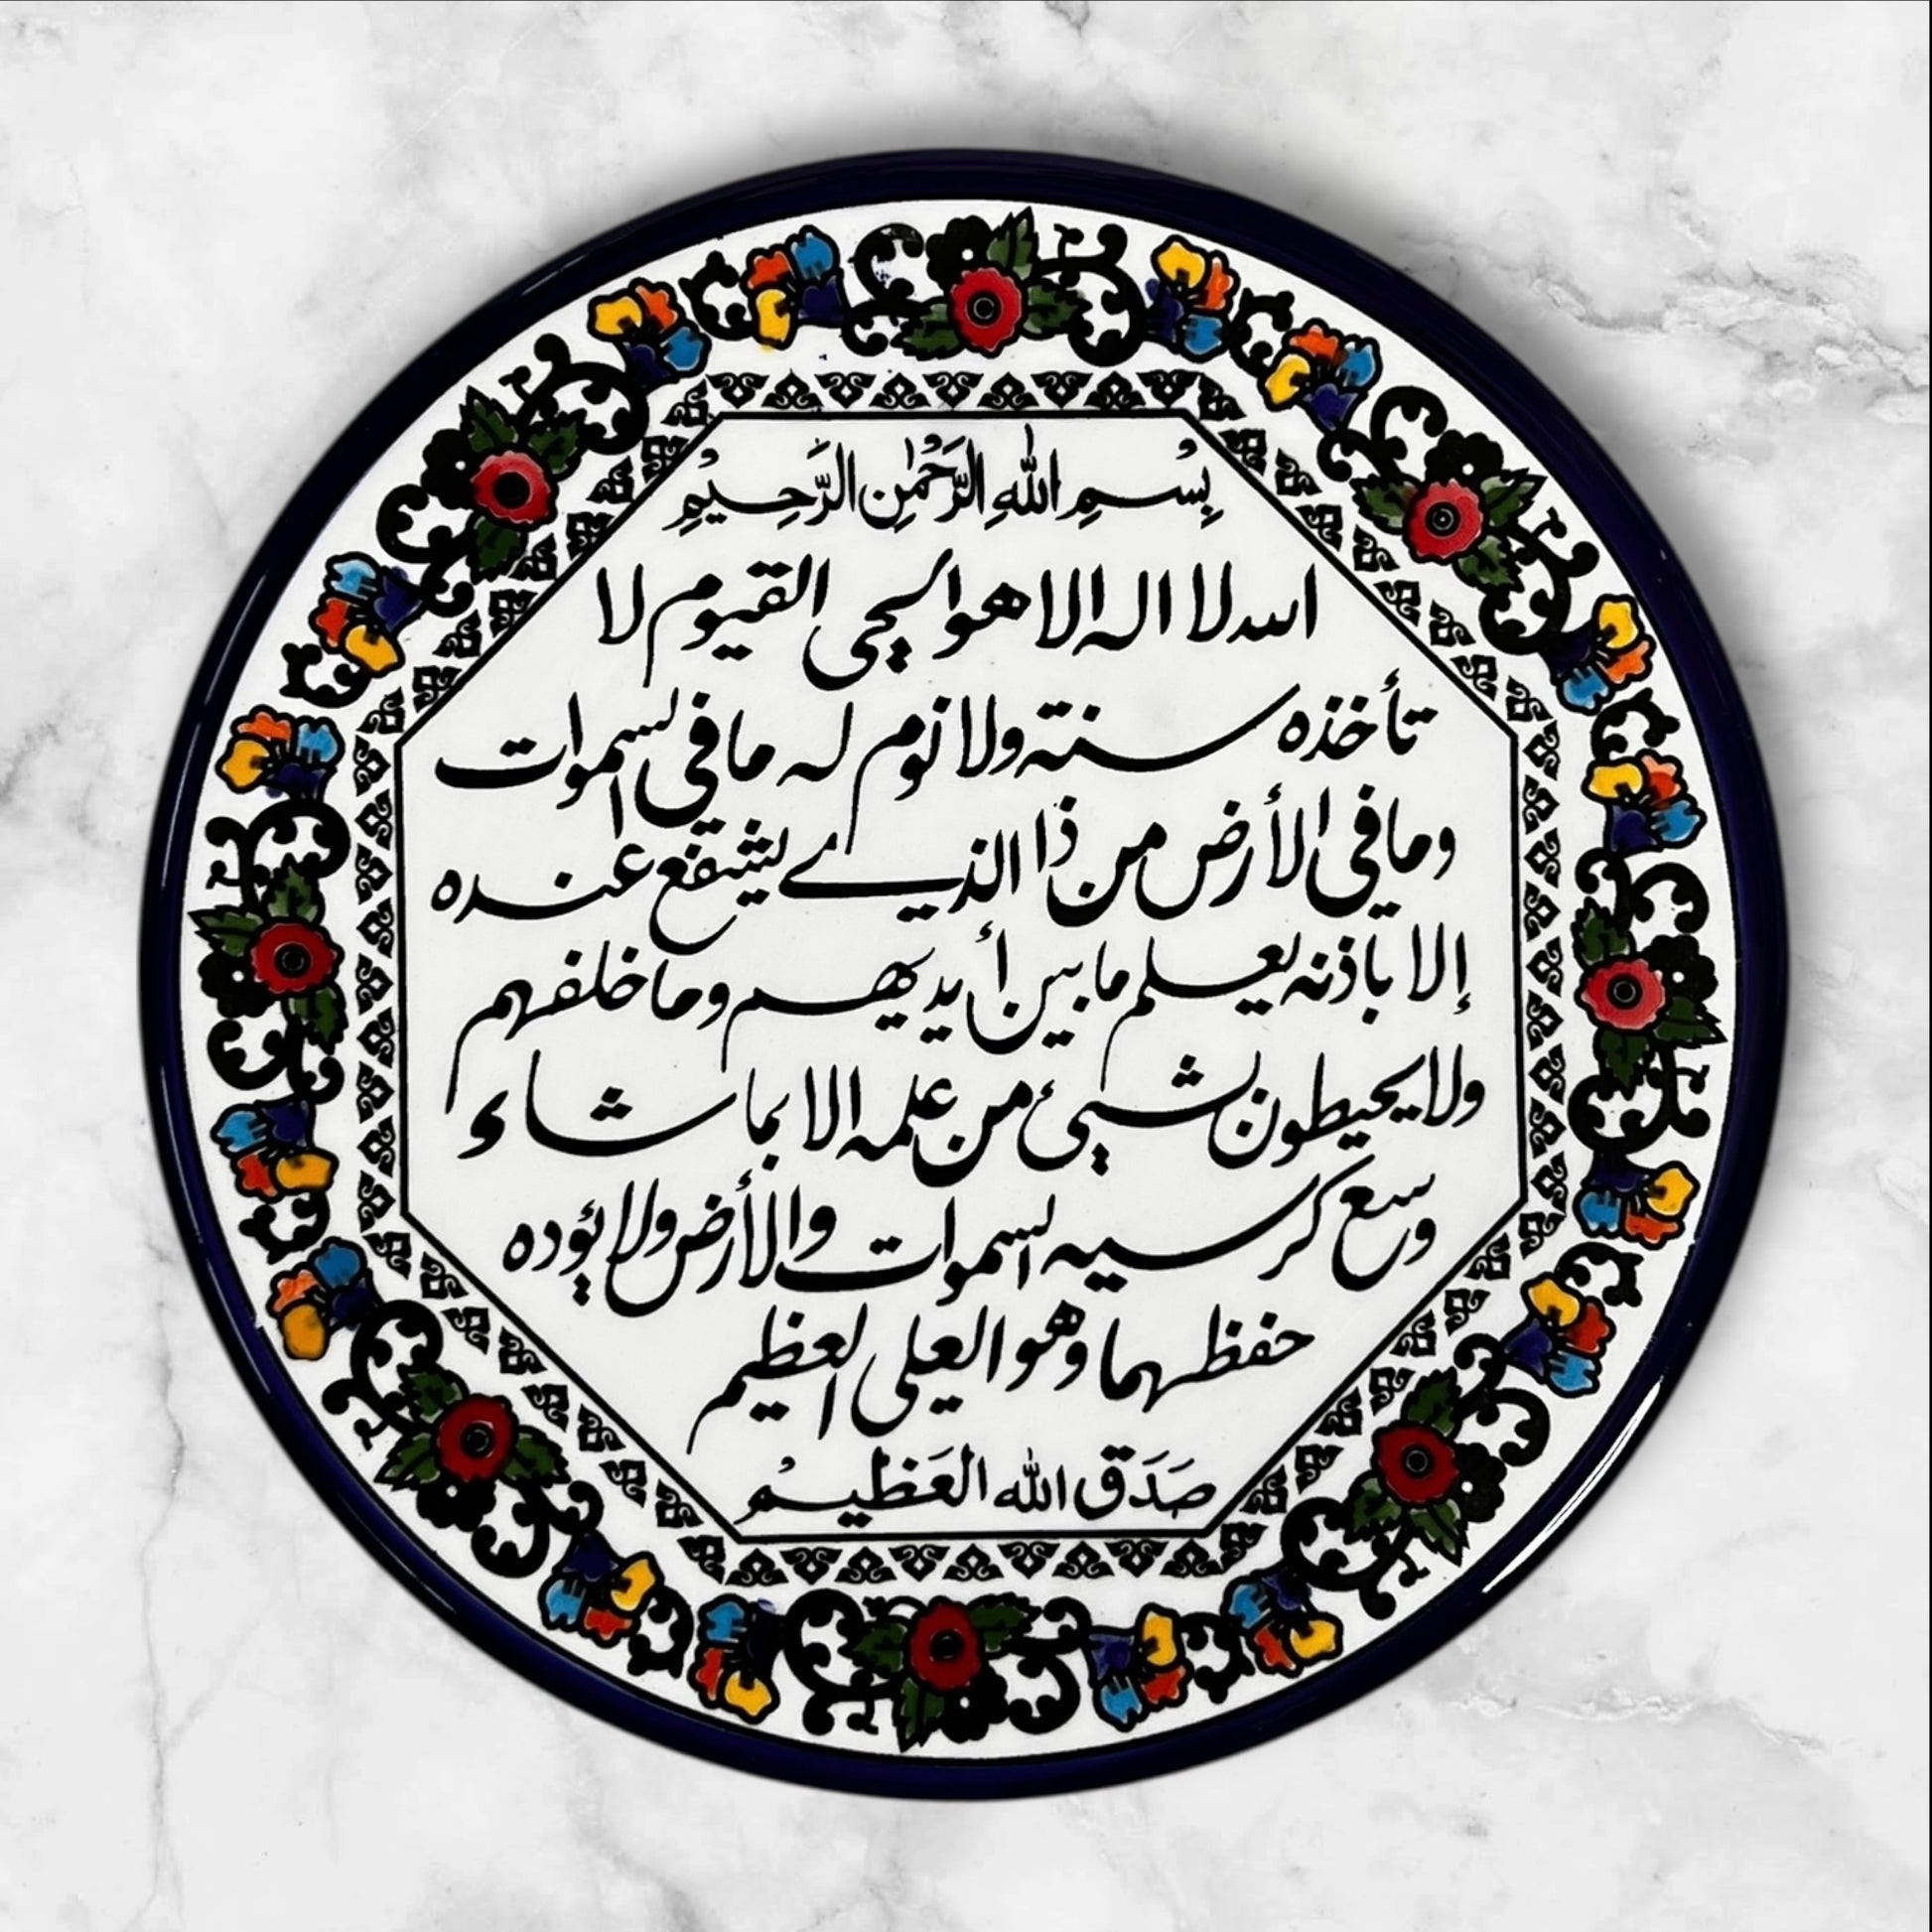 بِسْمِ اللهِ الرَّحْمٰنِ الرَّحِيمِ
الله لا اله الا هو الحي القيوم لا
تأخذه سنته ولا نوم له ما في السموات
وما في الأرض من ذا الذي يشفع عنده
إلا باذنه يعلم ما بين أيديهم وما خلفهم
ولا يحيطون بشيئ من علمه الا بما شاء
وسع كرسيه السموات والأرض ولا يؤده
حفظهما وهو العلي العظيم
صَدَق الله العَظيمْ